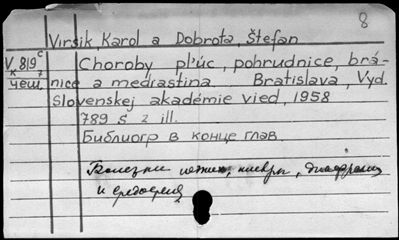 8
Virsik, Karol a Dobrota, Štefan
V 819 c Choroby pl'úc, pohrudnice, brá-
к 7
чеш. nice a mediastina Bratislava, Vyd.
Slovenskej akadémie vied, 1958
789 s 2 ill.
Библиогр в конце глав
Болезни легких, плевры, диафрагмы
и средостения